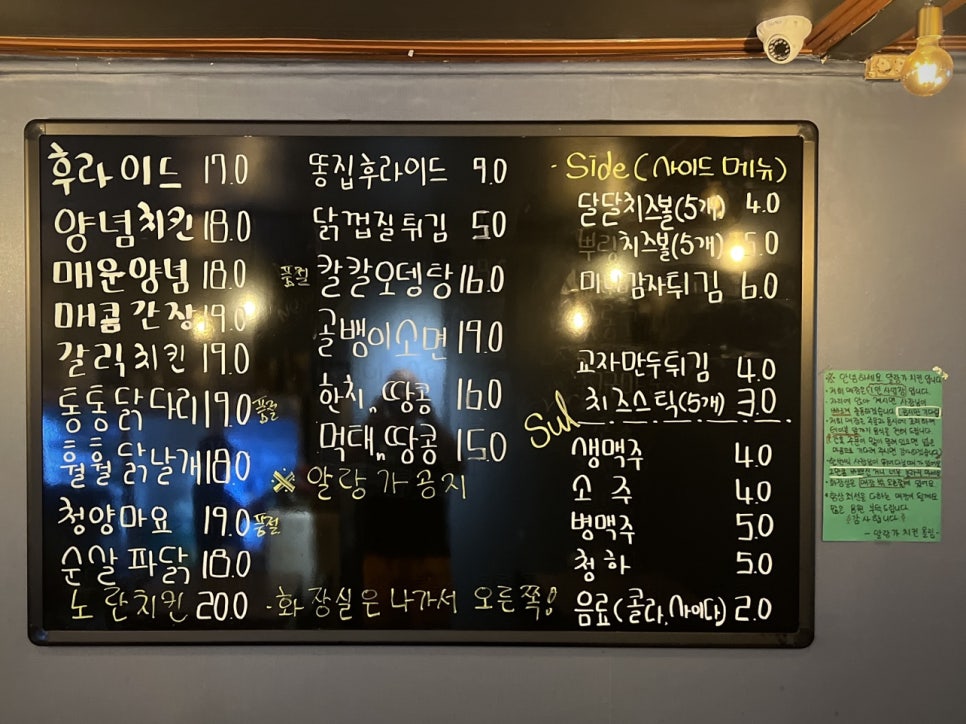 후라이드 17.0
양념치킨 18.0
매운양념 18.0
매콤간장 19.0
갈릭치킨 19.0
통통닭다리 19.0 품절
훨훨닭날개 18.0
청양마요 19.0 품절
순살파닭 18.0
노란치킨 20.0
똥집후라이드 9.0
닭껍질튀김 5.0
품절 칼칼오뎅탕 16.0
골뱅이소면 19.0
한치, 땅콩 16.0
먹태, 땅콩 15.0
※ 알랑가공지
· 화장실은 나가서 오른쪽!
· Side (사이드 메뉴)
달달치즈볼(5개) 4.0
뿌링치즈볼(5개) 5.0
미니감자튀김 6.0
교자만두튀김 4.0
치즈스틱(5개) 3.0
Sul
생맥주 4.0
소주 4.0
병맥주 5.0
청하 5.0
음료(콜라,사이다) 2.0
※ 안녕하세요 알랑가 치킨 입니다
· 저희 매장은 (1인 사업장) 입니다.
감사합니다
- 알랑가 치킨 올림 -